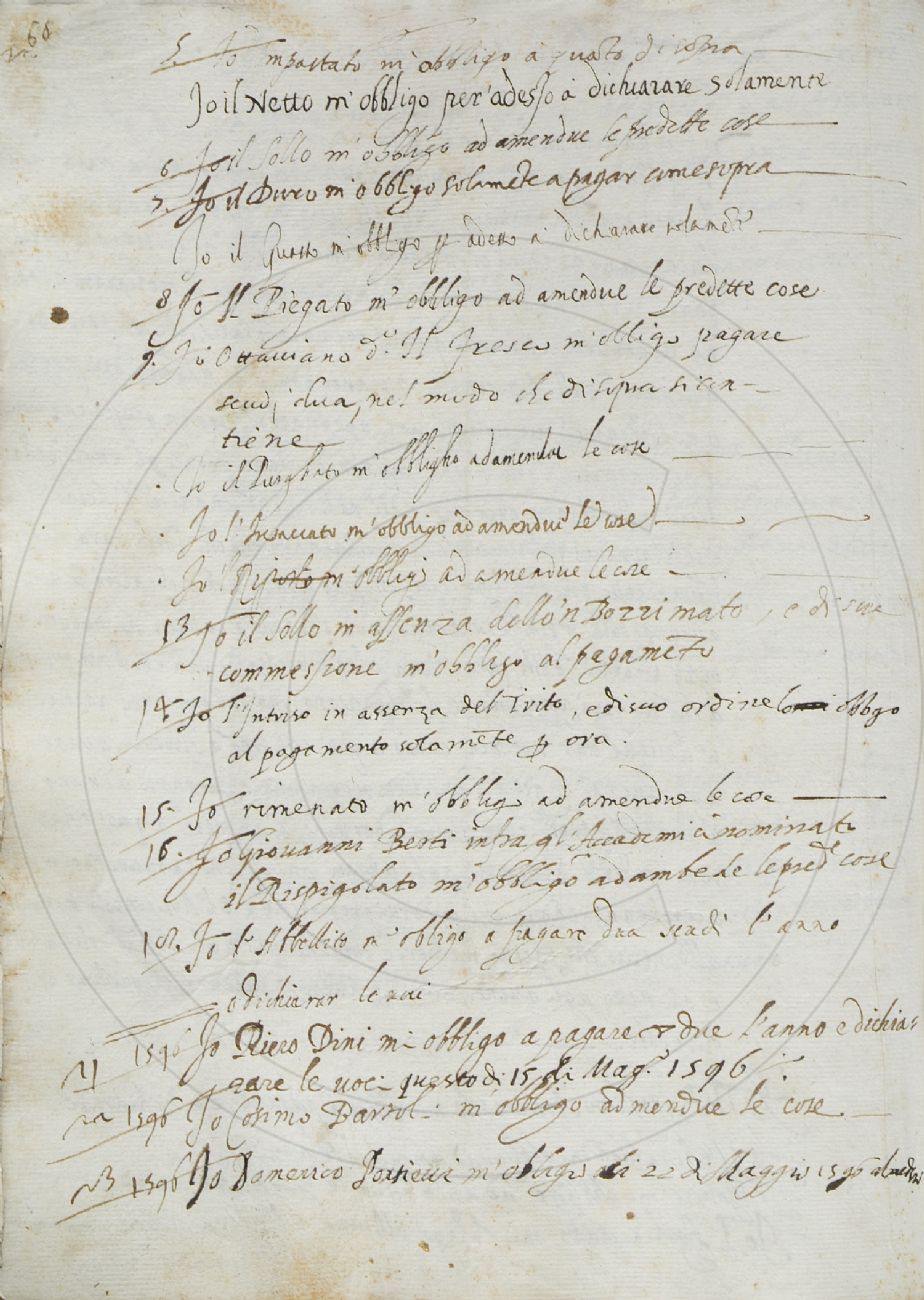 68
5. Io impastato m'obbligo à quãto di sopra
Io il Netto m'obbligo per adesso à dichiarare solamente
6 Io il Sollo m'obbligo ad amendue le predette cose
7. Io il Duro m'obbligo solamẽte a pagar come sopra
Io il Guasto m'obbligo p adesso à dichiarare solamẽte
8 Io Il Piegato m'obbligo ad amendue le predette cose
9. Io Ottaviano d.º Il Fresco m'obligo pagare
scudi dua, nel modo che di sopra si con-
tiene
Io il m'obbligho ad amendue le cose
Io l'Insaccato m'obbligo ad amendue le cose
Io l m'obbligo ad amendue le cose
13 Io il Sollo in assenza dello'nBozzimato, e di sua
commessione m'obbligo al pagamẽto
14. Io l'Intriso in assenza del Trito, e di suo ordine obbgo
al pagamento solamẽte p ora.
15. Io rimenato m'obbligo ad amendue le cose
16. Io Giovanni Berti infra gl'Accademici nominato
il Rispigolato m'obbligo ad ambe de le pred.e cose
18. Io l'Abbellito m'obligo a pagare dua scudi l'anno
e dichiarar le voci
1596 Io Piero Dini mi obbligo a pagare due l'anno e dichia-
rare le voci questo dì 15 di Mag.º 1596
22 1596 Io Cosimo m'obbligo admendue le cose
23 1596 Io Domenico m'obbligo alli 22 di Maggio 1596